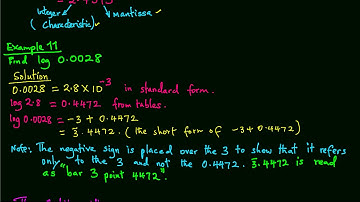 Integer Mantissa
( Characteristic )
Example 11
Find log 0.0028
Solution
0.0028 = 2.8 X 10⁻³ in standard form.
log 2.8 = 0.4472 from tables.
log 0.0028 = -3 + 0.4472
= 3̄.4472. ( the short form of -3+0.4472)
Note: The negative sign is placed over the 3 to show that it refers
only to the 3 and not the 0.4472. 3̄.4472 is read
as "bar 3 point 4472".